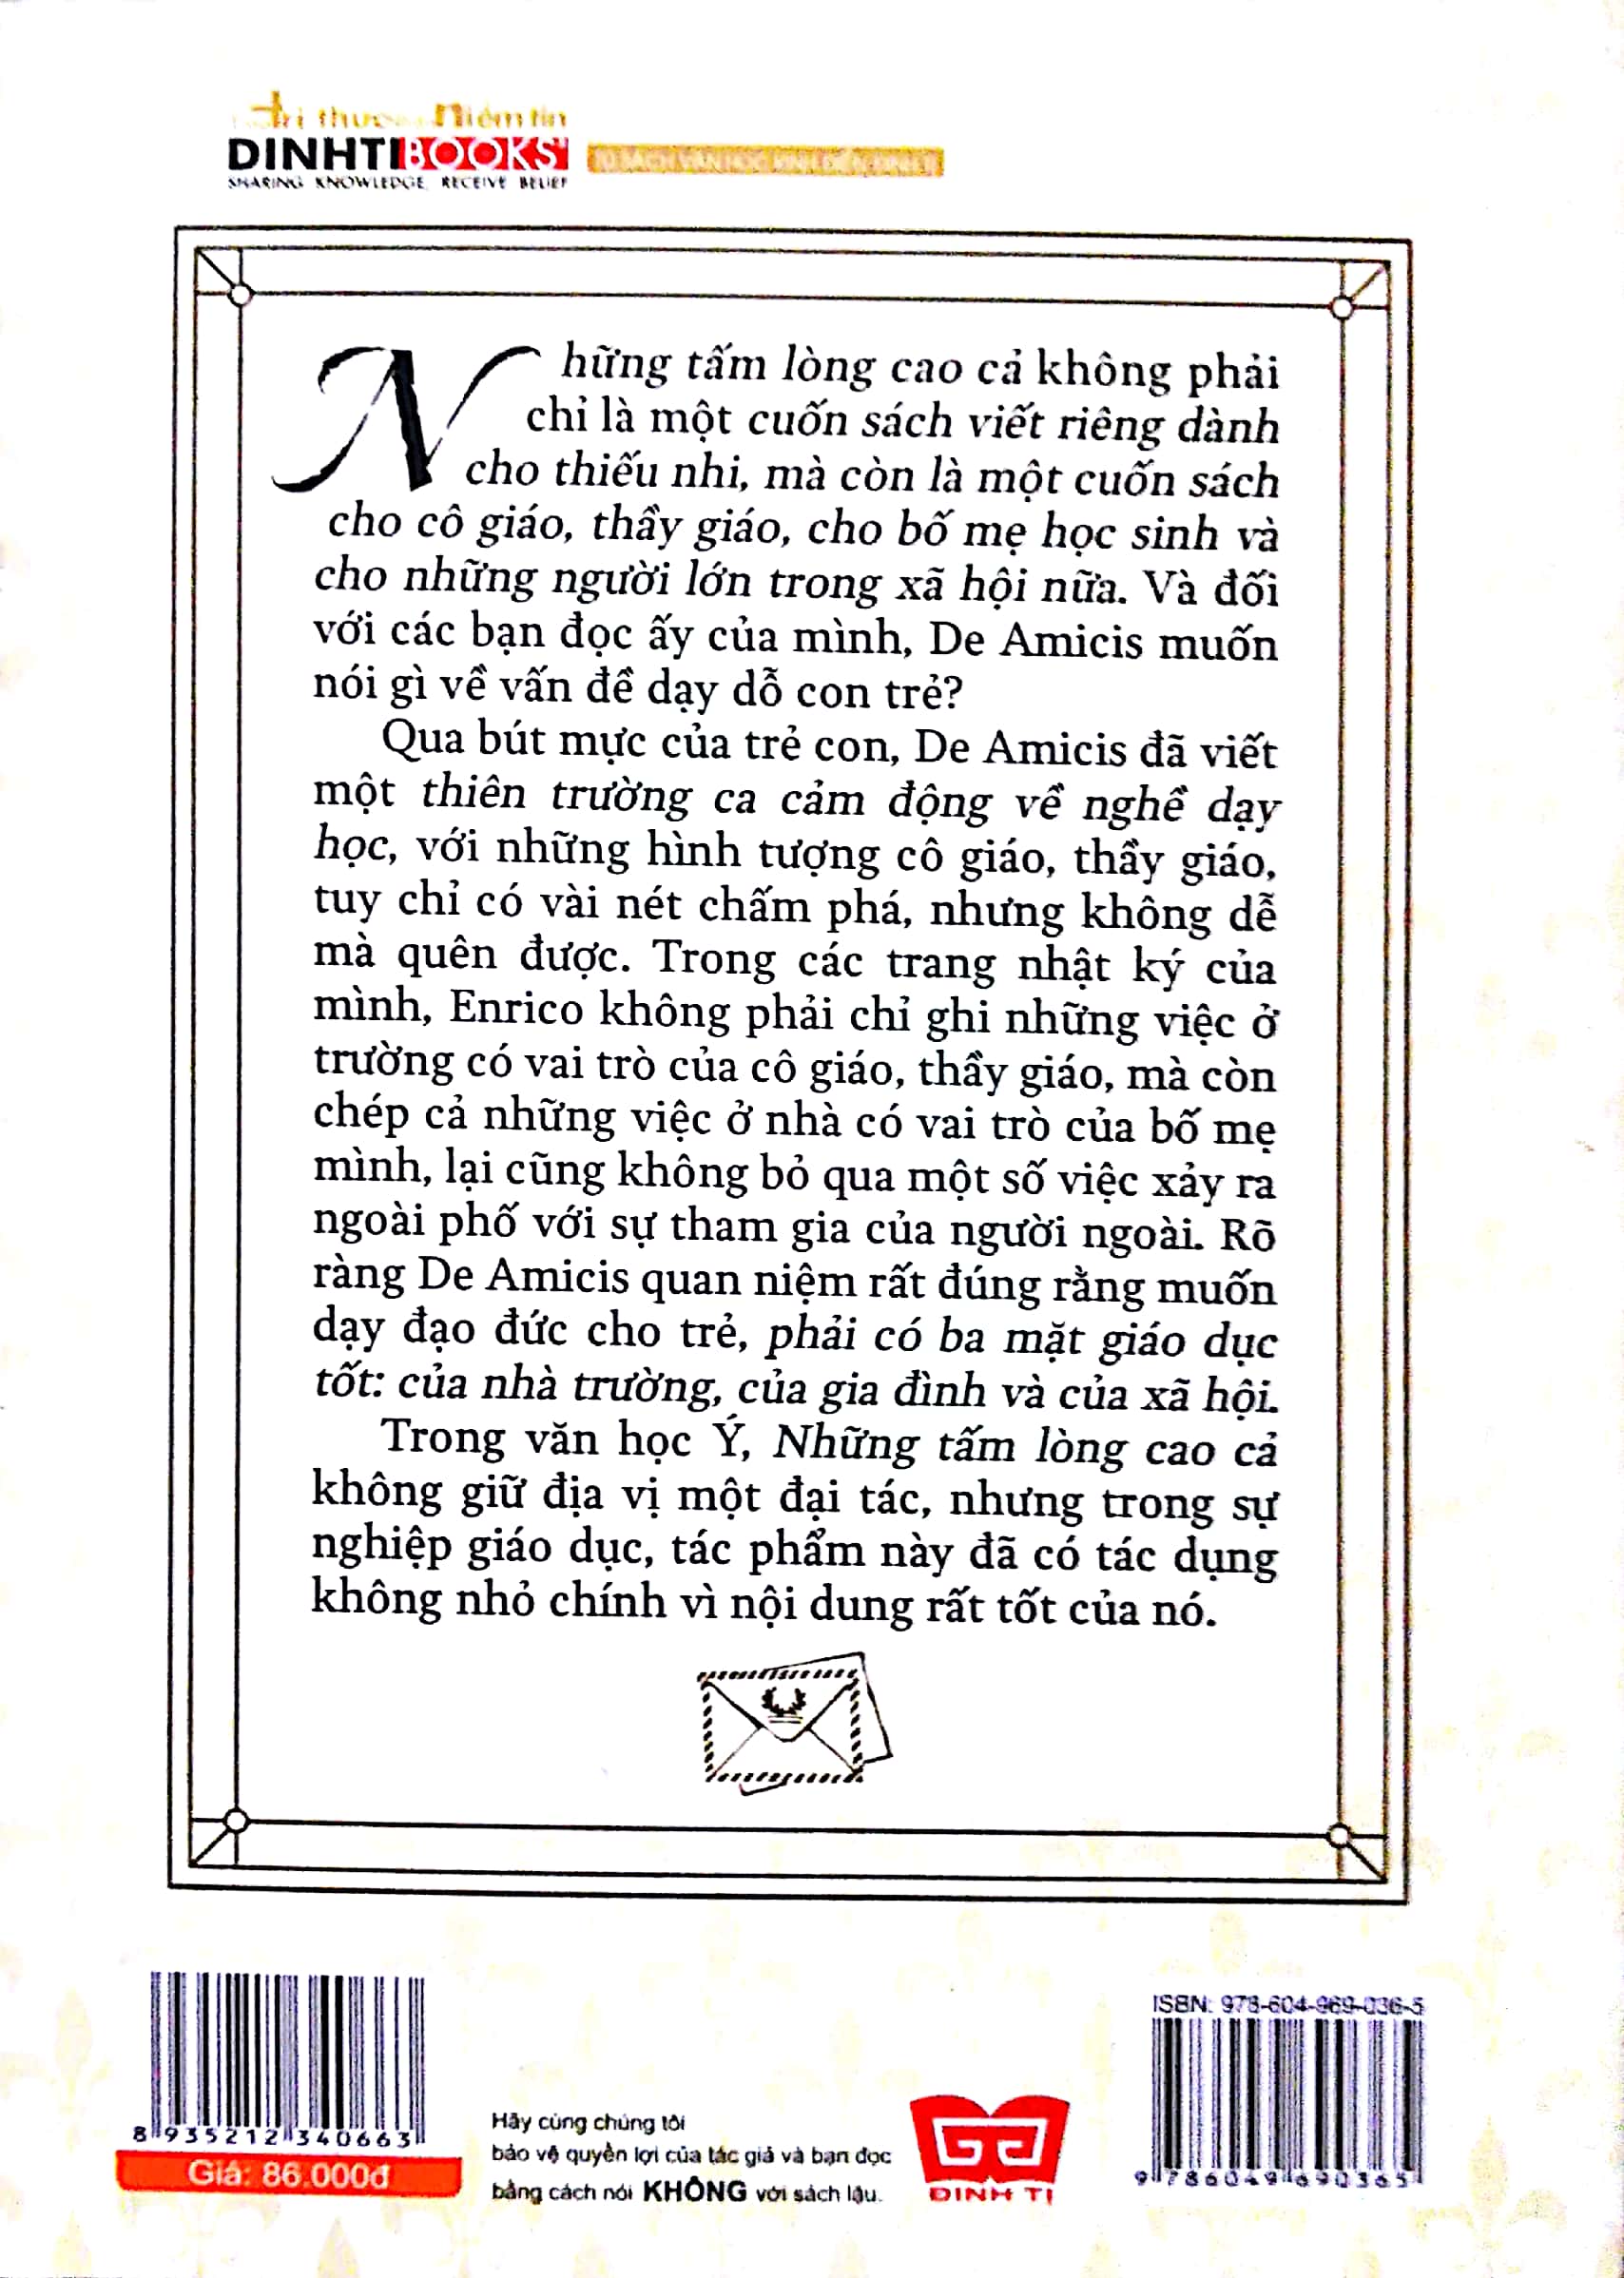 Tri thức Niềm tin
DINHTIBOOKS
SHARING KNOWLEDGE, RECEIVE BELIEF
TỦ SÁCH VĂN HỌC KINH ĐIỂN ĐINH TỊ
Những tấm lòng cao cả không phải
chỉ là một cuốn sách viết riêng dành
cho thiếu nhi, mà còn là một cuốn sách
cho cô giáo, thầy giáo, cho bố mẹ học sinh và
cho những người lớn trong xã hội nữa. Và đối
với các bạn đọc ấy của mình, De Amicis muốn
nói gì về vấn đề dạy dỗ con trẻ?
Qua bút mực của trẻ con, De Amicis đã viết
một thiên trường ca cảm động về nghề dạy
học, với những hình tượng cô giáo, thầy giáo,
tuy chỉ có vài nét chấm phá, nhưng không dễ
mà quên được. Trong các trang nhật ký của
mình, Enrico không phải chỉ ghi những việc ở
trường có vai trò của cô giáo, thầy giáo, mà còn
chép cả những việc ở nhà có vai trò của bố mẹ
mình, lại cũng không bỏ qua một số việc xảy ra
ngoài phố với sự tham gia của người ngoài. Rõ
ràng De Amicis quan niệm rất đúng rằng muốn
dạy đạo đức cho trẻ, phải có ba mặt giáo dục
tốt: của nhà trường, của gia đình và của xã hội.
Trong văn học Ý, Những tấm lòng cao cả
không giữ địa vị một đại tác, nhưng trong sự
nghiệp giáo dục, tác phẩm này đã có tác dụng
không nhỏ chính vì nội dung rất tốt của nó.
8 935212 340663
Giá: 86.000đ
Hãy cùng chúng tôi
bảo vệ quyền lợi của tác giả và bạn đọc
bằng cách nói KHÔNG với sách lậu.
ĐINH TỊ
ISBN: 978-604-969-036-5
9 786049 690365